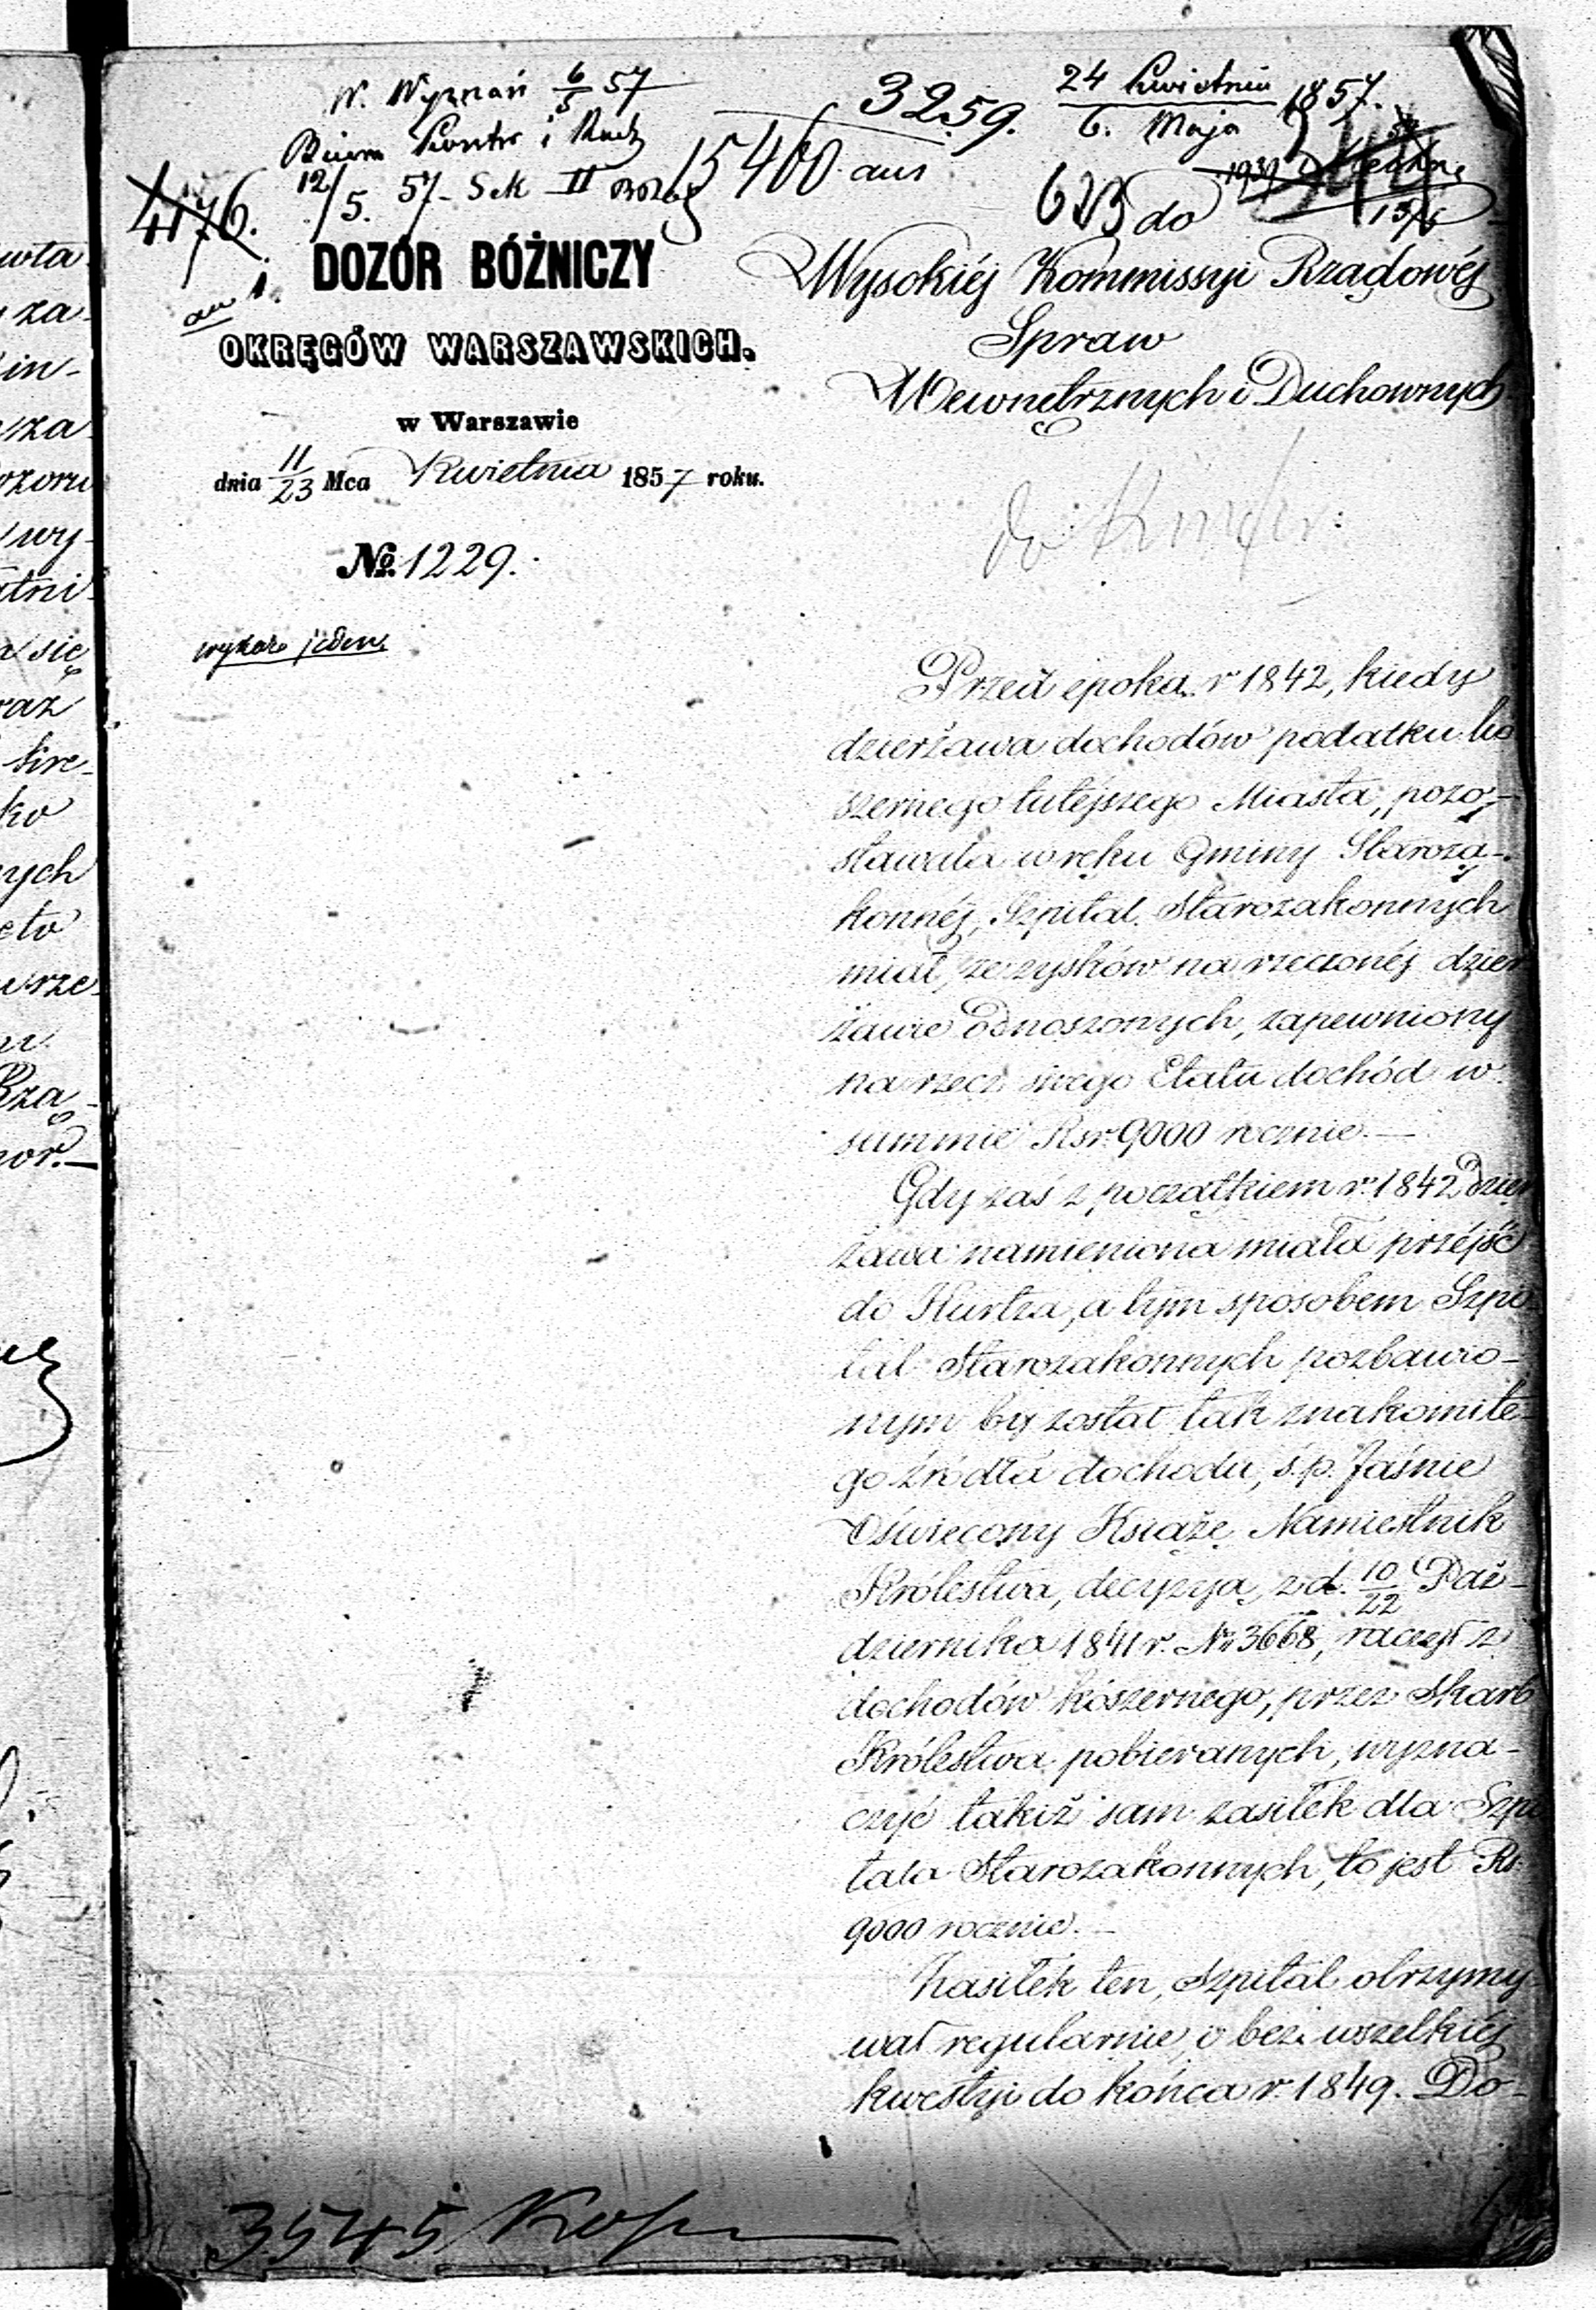 W. Wyznań 6/5 57
3259.
24 Kwietnia
6. Maja
1857.
Biuro Kontr i Rach
12/5. 57- Sek II
15460
4176.
623 do
DOZÓR BÓŻNICZY
OKRĘGÓW WARSZAWSKICH.
w Warszawie
dnia 11/23 Mca Kwietnia 1857 roku.
№ 1229.
wykaz jeden
Wysokiéj Kommissyi Rządowéj
Spraw
Wewnętrznych i Duchownych
Przed epoką r 1842, kiedy
dzierżawa dochodów podatku ko
szernego tutejszego Miasta, pozo-
stawała w ręku Gminy Staroza-
konnéj, Szpital Starozakonnych
miał, ze zysków na rzeczonéj dzier
żawie odnoszonych, zapewniony
na rzecz swego Etatu dochód w
summie Rsr. 9000 rocznie.—
Gdy zaś z początkiem r. 1842 dzier
żawa namieniona miała przéjść
do Kurtza, a tym sposobem Szpi
tal Starozakonnych pozbawio-
nym by został tak znakomite-
go źródła dochodu, ś.p. Jaśnie
Oświecony Książę Namiestnik
Królestwa, decyzyą z d. 10/22 Paź-
dziernika 1841 r. Nr 3668, raczył z
dochodów kószernego, przez Skarb
Królestwa pobieranych, wyzna-
czyć takiż sam zasiłek dla Szpi
tala Starozakonnych, to jest Rs.
9000 rocznie.—
Zasiłek ten, Szpital otrzymy-
wał regularnie i bez wszelkiéj
kwestyi do końca r. 1849. Do-
3545